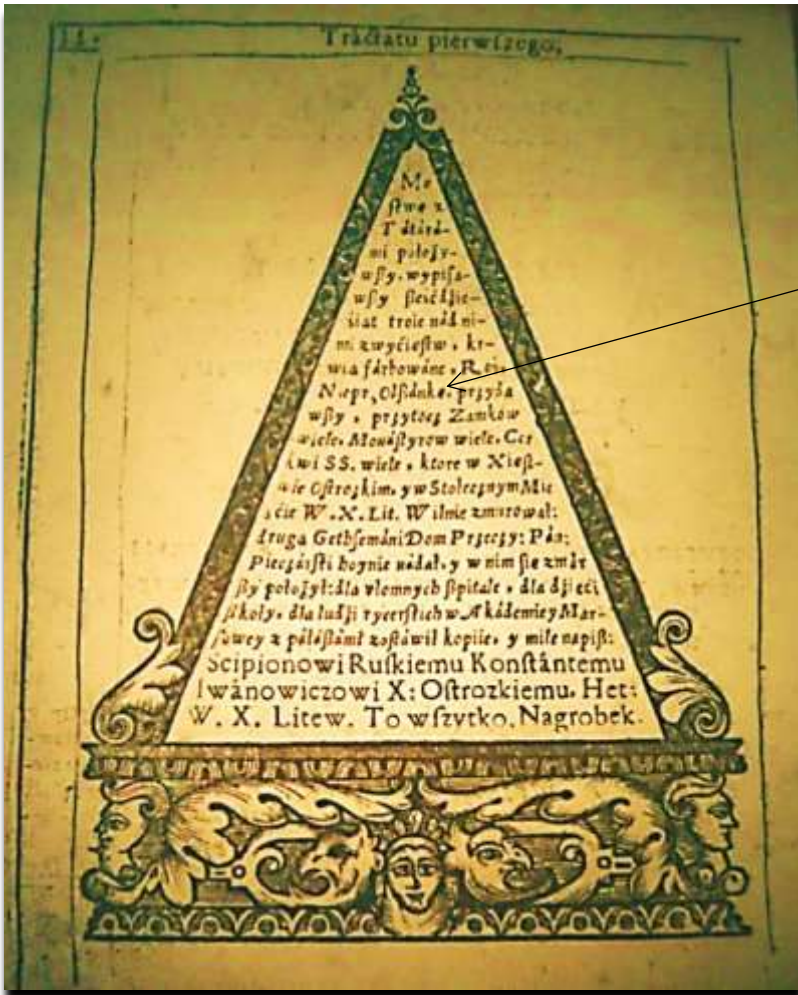 Tráctatu pierwſzego,
Mo
ſtwo z
Tátárá-
mi położy-
wſzy, wypiſa-
wſzy ſześćdźie-
śiąt troie nád ni-
mi zwyćięſtw, kr-
wią fárbowáne, Roś,
Niepr, Olſzánkę, przyda
wſzy, przytocz Zamkow
wiele, Monáſtyrow wiele, Cer
kwi SS. wiele, ktore w Xięſt-
wie Oſtrozkim, y w Stołecznym Mie
śćie W. X. Lit. Wilnie zmurował:
druga Gethſemáni Dom Przeczy: Pán:
Pieczárſki hoynie nádał, y w nim ſię zmár
ſzy położył: dla vłomnych ſzpitale, dla dźieći
ſzkoły, dla ludźi rycerſkich w Akádemiey Mar-
ſowey z páłáſzámi zoſtáwił kopiie, y mile nápiſz:
Scipionowi Ruſkiemu Konſtántemu
Iwánowiczowi X: Oſtrozkiemu, Het:
W. X. Litew. To wſzytko, Nagrobek.